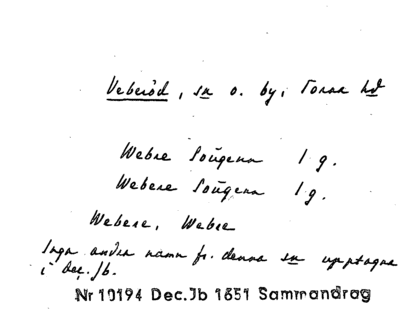 Veberöd, sn o. by, Torna hd
Webre Soügenn 1 g.
Webere Soügenn 1 g.
Webere, Webre
Inga andra namn fr. denna sn upptagna
i Dec. Jb.
Nr 10194 Dec.Jb 1651 Sammandrag